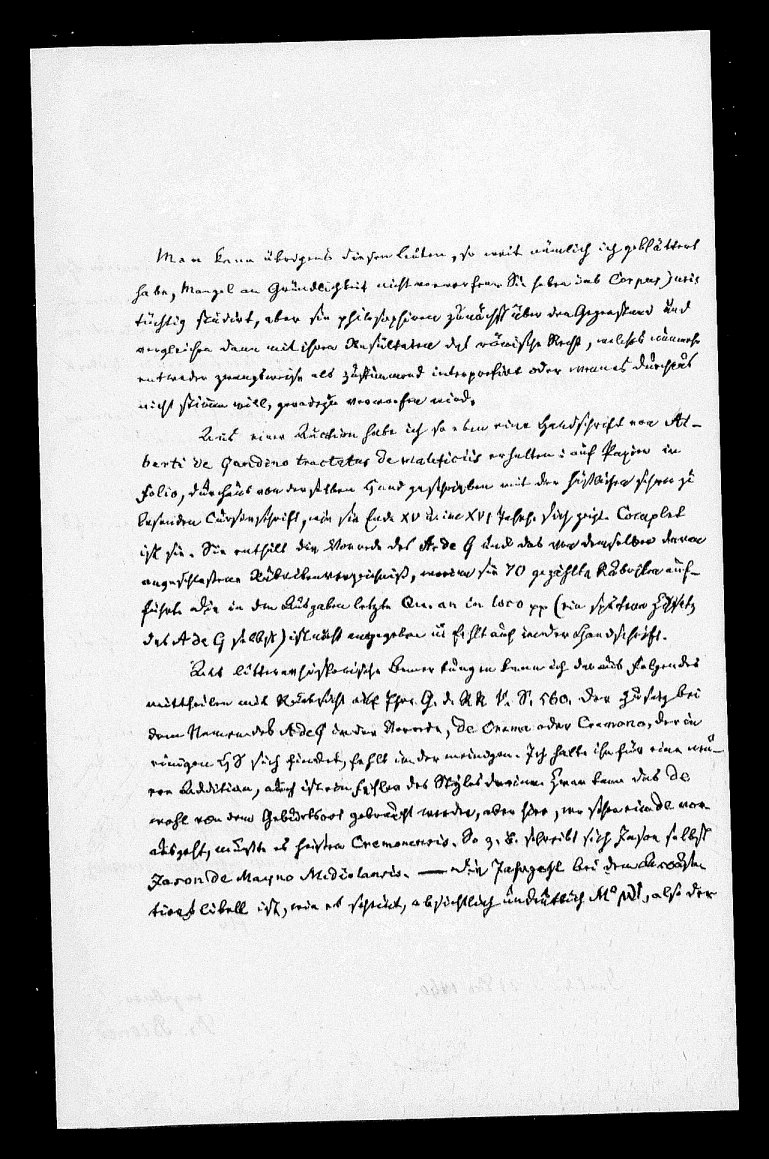 Man kann übrigens diesen Leuten, so weit nämlich ich geblättert
habe, Mangel an Gründlichkeit nicht vorwerfen. Sie haben das Corpus juris
tüchtig studirt, aber sie philosophiren zunächst über den Gegenstand und
vergleichen dann mit ihren Resultaten das römische Recht, welches nunmehr
entweder zwangsweise als zustimmend interpretirt oder wenn es durchaus
nicht stimmen will, geradezu verworfen wird.
Aus einer Auction habe ich so eben eine Handschrift von Al-
berti de Gandino tractatus de maleficiis erhalten: auf Papier in
folio, durchaus von derselben Hand geschrieben mit der häßlichen schwer zu
lesenden Cursivschrift, wie sie Ende XV u. ine XVI Jahrh. sich zeigt. Complet
ist sie. Sie enthält die Vorrede des A. de G und das von demselben daran
angeschlossene Rubrikenverzeichniß, worin sie 70 gezählte Rubriken auf-
führt. Die in den Ausgaben letzte an in loco pp (ein späterer Zusatz
des A de G selbst) ist nicht angegeben u fehlt auch in der Handschrift.
Als litterarhistorische Bemerkungen kann ich daraus folgendes
mittheilen mit Rücksicht auf G. d. R R V. S. 560. Der Zusatz bei
dem Namen des A de G in der Vorrede, de Crema oder Cremona, der in
einigen HS sich findet, fehlt in der meinigen. Ich halte ihn für eine neu-
ere Addition, auch ist ein Fehler des Styles darin. Zwar kann das de
wohl von dem Geburtsort gebraucht werden, aber hier, wo schon ein de vor-
ausgeht, müßte es heißen Cremonensis. So z. B. schreibt sich Jason selbst
Jason de Mayno Mediolanensis. — Die Jahrzahl bei dem
libell ist, wie es scheint, absichtlich undeutlich M°, also der